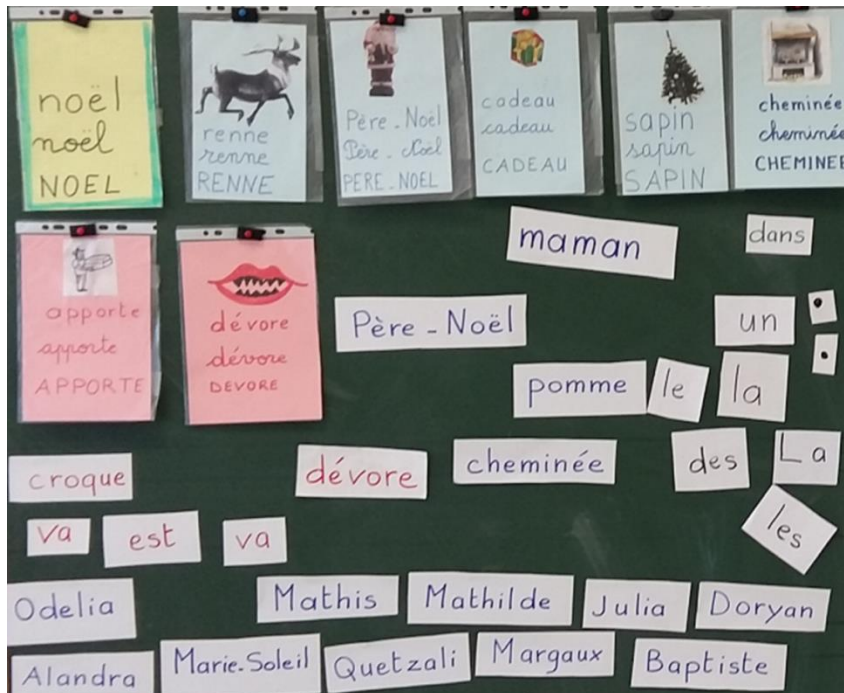 noël
noël
NOEL
renne
renne
RENNE
Père - Noël
Père - Noël
PERE - NOEL
cadeau
cadeau
CADEAU
sapin
sapin
SAPIN
cheminée
cheminée
CHEMINEE
apporte
apporte
APPORTE
dévore
dévore
DEVORE
maman
dans
Père - Noël
un
.
.
pomme
le
la
croque
dévore
cheminée
des
La
va
est
va
les
Odelia
Mathis
Mathilde
Julia
Doryan
Alandra
Marie-Soleil
Quetzali
Margaux
Baptiste